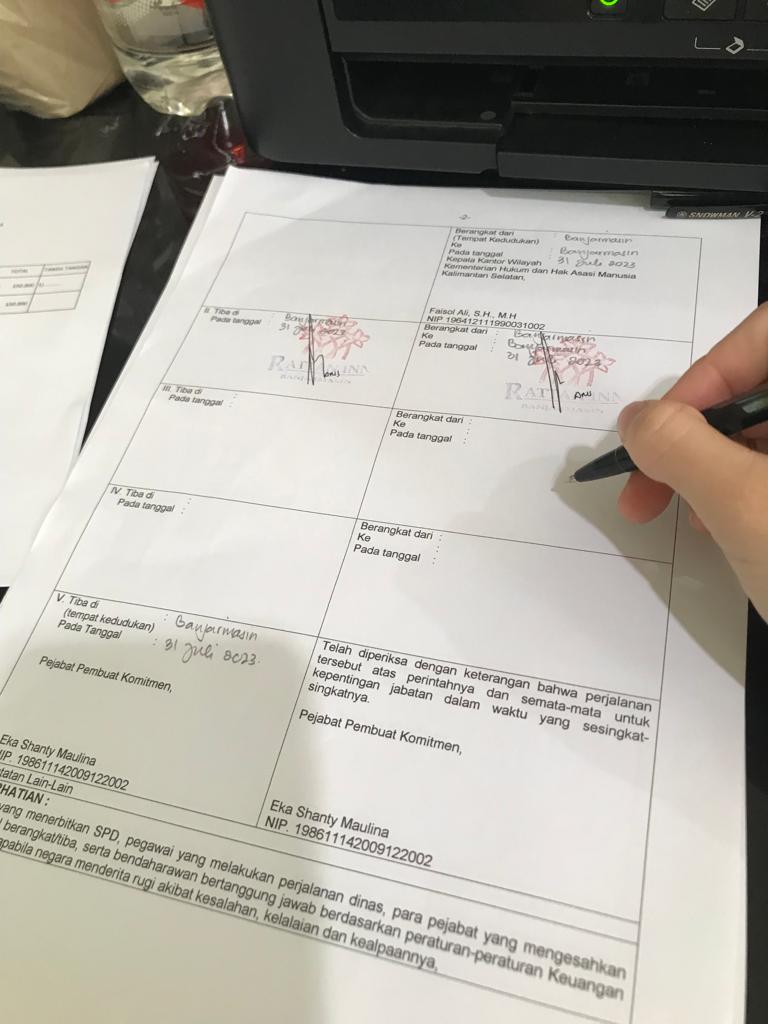 -2-
Berangkat dari : Banjarmasin
(Tempat Kedudukan)
Ke : Banjarmasin
Pada tanggal : 31 Juli 2023
Kepala Kantor Wilayah
Kementerian Hukum dan Hak Asasi Manusia
Kalimantan Selatan,
Faisol Ali, S.H., M.H
NIP 196412111990031002
II. Tiba di : Banjarmasin
Pada tanggal : 31 Juli 2023
RATTAN INN
BANJARMASIN
ANS
Berangkat dari : Banjarmasin
Ke : Banjarmasin
Pada tanggal : 31 Juli 2023
RATTAN INN
BANJARMASIN
ANS
III. Tiba di :
Pada tanggal :
Berangkat dari :
Ke :
Pada tanggal :
IV. Tiba di :
Pada tanggal :
Berangkat dari :
Ke :
Pada tanggal :
V. Tiba di
(tempat kedudukan) : Banjarmasin
Pada Tanggal : 31 Juli 2023.
Pejabat Pembuat Komitmen,
Eka Shanty Maulina
NIP. 198611142009122002
Telah diperiksa dengan keterangan bahwa perjalanan
tersebut atas perintahnya dan semata-mata untuk
kepentingan jabatan dalam waktu yang sesingkat-
singkatnya.
Pejabat Pembuat Komitmen,
Eka Shanty Maulina
NIP. 198611142009122002
tatan Lain-Lain
HATIAN :
yang menerbitkan SPD, pegawai yang melakukan perjalanan dinas, para pejabat yang mengesahkan
berangkat/tiba, serta bendaharawan bertanggung jawab berdasarkan peraturan-peraturan Keuangan
pabila negara menderita rugi akibat kesalahan, kelalaian dan kealpaannya,
TOTAL
TANDA TANGAN
SNOWMAN V-2